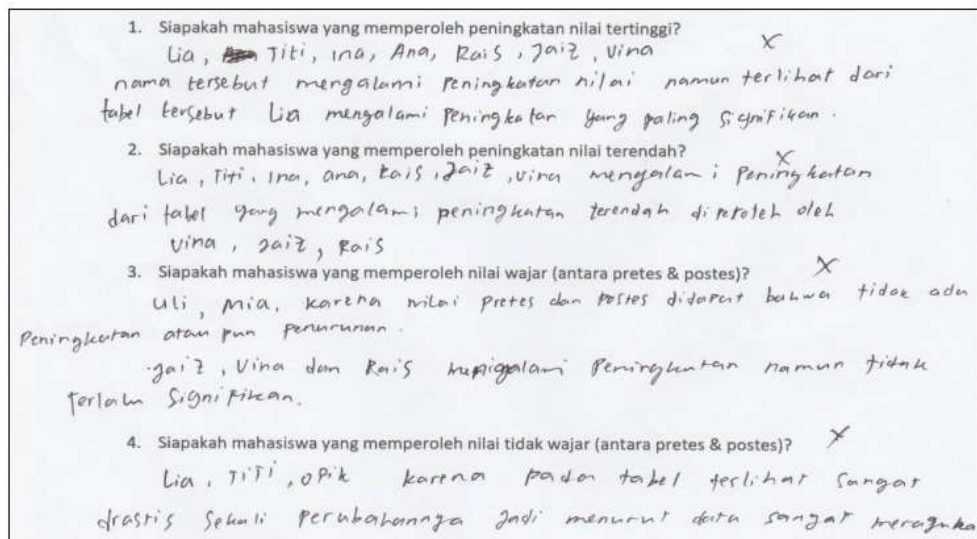 1. Siapakah mahasiswa yang memperoleh peningkatan nilai tertinggi?
Lia, Titi, Ina, Ana, Rais, Jaiz, Vina X
nama tersebut mengalami Peningkatan nilai namun terlihat dari
tabel tersebut Lia mengalami Peningkatan yang paling Signifikan.
2. Siapakah mahasiswa yang memperoleh peningkatan nilai terendah? X
Lia, Titi, Ina, ana, Rais, Jaiz, vina mengalami Peningkatan
dari tabel yang mengalami peningkatan terendah diperoleh oleh
Vina, Jaiz, Rais
3. Siapakah mahasiswa yang memperoleh nilai wajar (antara pretes & postes)? X
Uli, Mia, karena nilai pretes dan postes didapat bahwa tidak ada
Peningkatan atau pun penurunan.
Jaiz, Vina dan Rais mengalami Peningkatan namun tidak
terlalu Signifikan.
4. Siapakah mahasiswa yang memperoleh nilai tidak wajar (antara pretes & postes)? X
Lia, TiTi, opik karena pada tabel terlihat sangat
drastis Sekali Perubahannya Jadi menurut data sangat meraguka